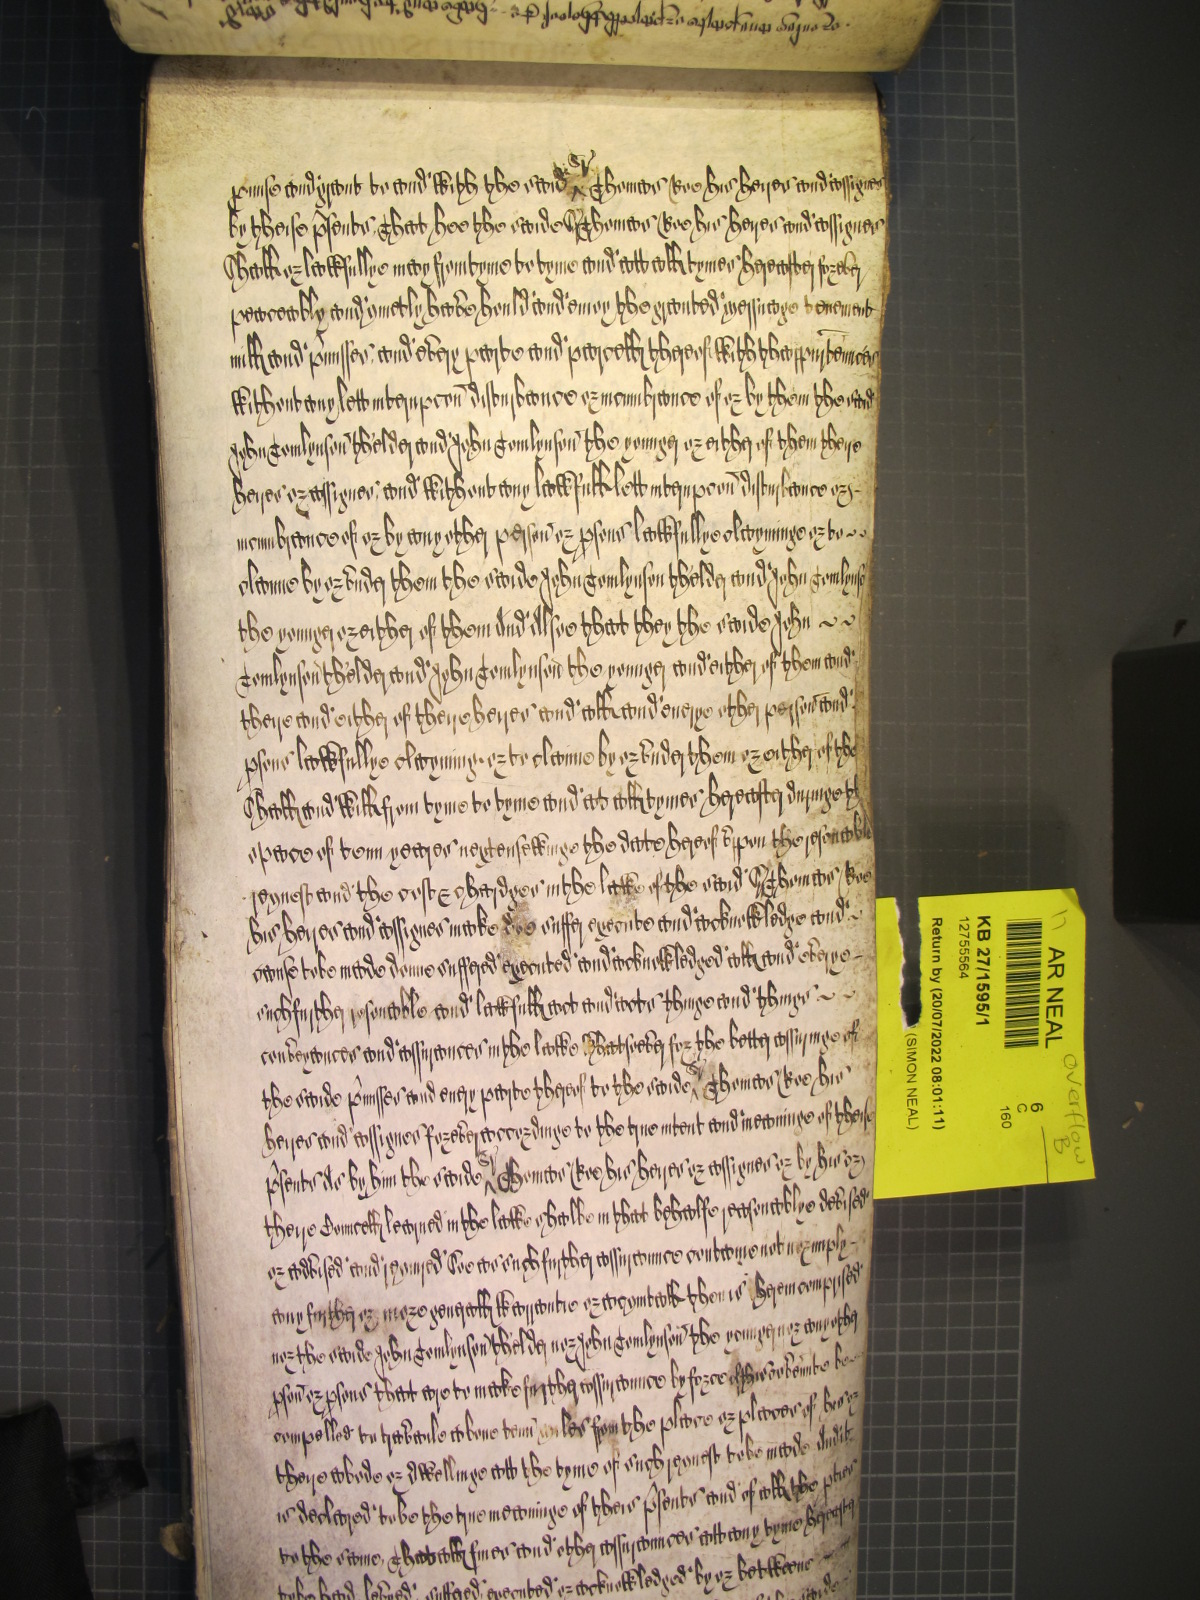 p̱mise and graunt to and with the said Sr Thomas Roe his heires and assignes
by theise p̄sents That hee the saide Sr Thomas Roe his heires and assignes
Shall or lawfullye may from tyme to tyme and att all tymes hereafter forever
peaceably and quietly have hould and enioy the graunted messuage tenement
mill and p̄misses and every parte and parcell thereof with thappurtennces
without any lett interrupcon disturbance or incumbrance of or by them the said
John Tomlynson thelder and John Tomlynson the younger or either of them theire
heires or assignes and without any lawfull lett interrupcon disturbance or
incumbrance of or by any other person or p̱sons lawfullye clayminge or to
claime by or under them the saide John Tomlynson thelder and John Tomlynson
the younger or either of them And Alsoe that they the saide John
Tomlynson thelder and John Tomlynson the younger and either of them and
theire and either of theire heires and all and everye other person and
p̱sons lawfullye clayminge or to claime by or under them or either of the
Shall and will from tyme to tyme and at all tymes hereafter duringe th
space of tenn yeares next ensewinge the date hereof upon the resonable
request and the cost & chardges in the lawe of the said Sr Thomas Roe
his heires and assignes make doe suffer execute and acknowledge and
cause to be made donne suffered executed and acknowledged all and everye
such further resonable and lawfull act and acts thinge and things
conveyances and assurances in the lawe whatsoever for the better assuringe of
the saide p̄misses and every parte thereof to the saide Sr Thomas Roe his
heires and assignes forever accordinge to the true intent and meaninge of theise
p̄sents As by him the saide Sr Thomas Roe his heires or assignes or by his or
theire Councell learned in the lawe shalbe in that behalfe reasonablye devised
or advised and required Soe as such further assurance containe not nor imply
any further or more generall warrantie or a then is herein comprised
nor the saide John Tomlynson thelder nor John Tomlynson the younger nor any other
p̱son or p̱sons that are to make further assurance by force of this covennte be
compelled to travaile above tenn miles from the place or places of his or
theire abode or dwellinge att the tyme of such request to be made And it
is declared to be the true meaninge of theis p̄sents and of all the p̱ties
to the same That all fines and other assurances att any tyme hereafter
to be had levied suffered executed or acknowledged by or betweene
AR NEAL
KB 27/1595/1
12755564
Return by (20/07/2022 08:01:11)
(SIMON NEAL)
6
C
160
overflow
B